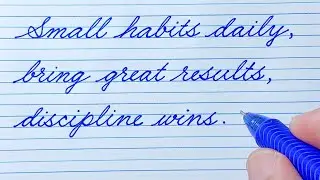 Small habits daily,
bring great results,
discipline wins.